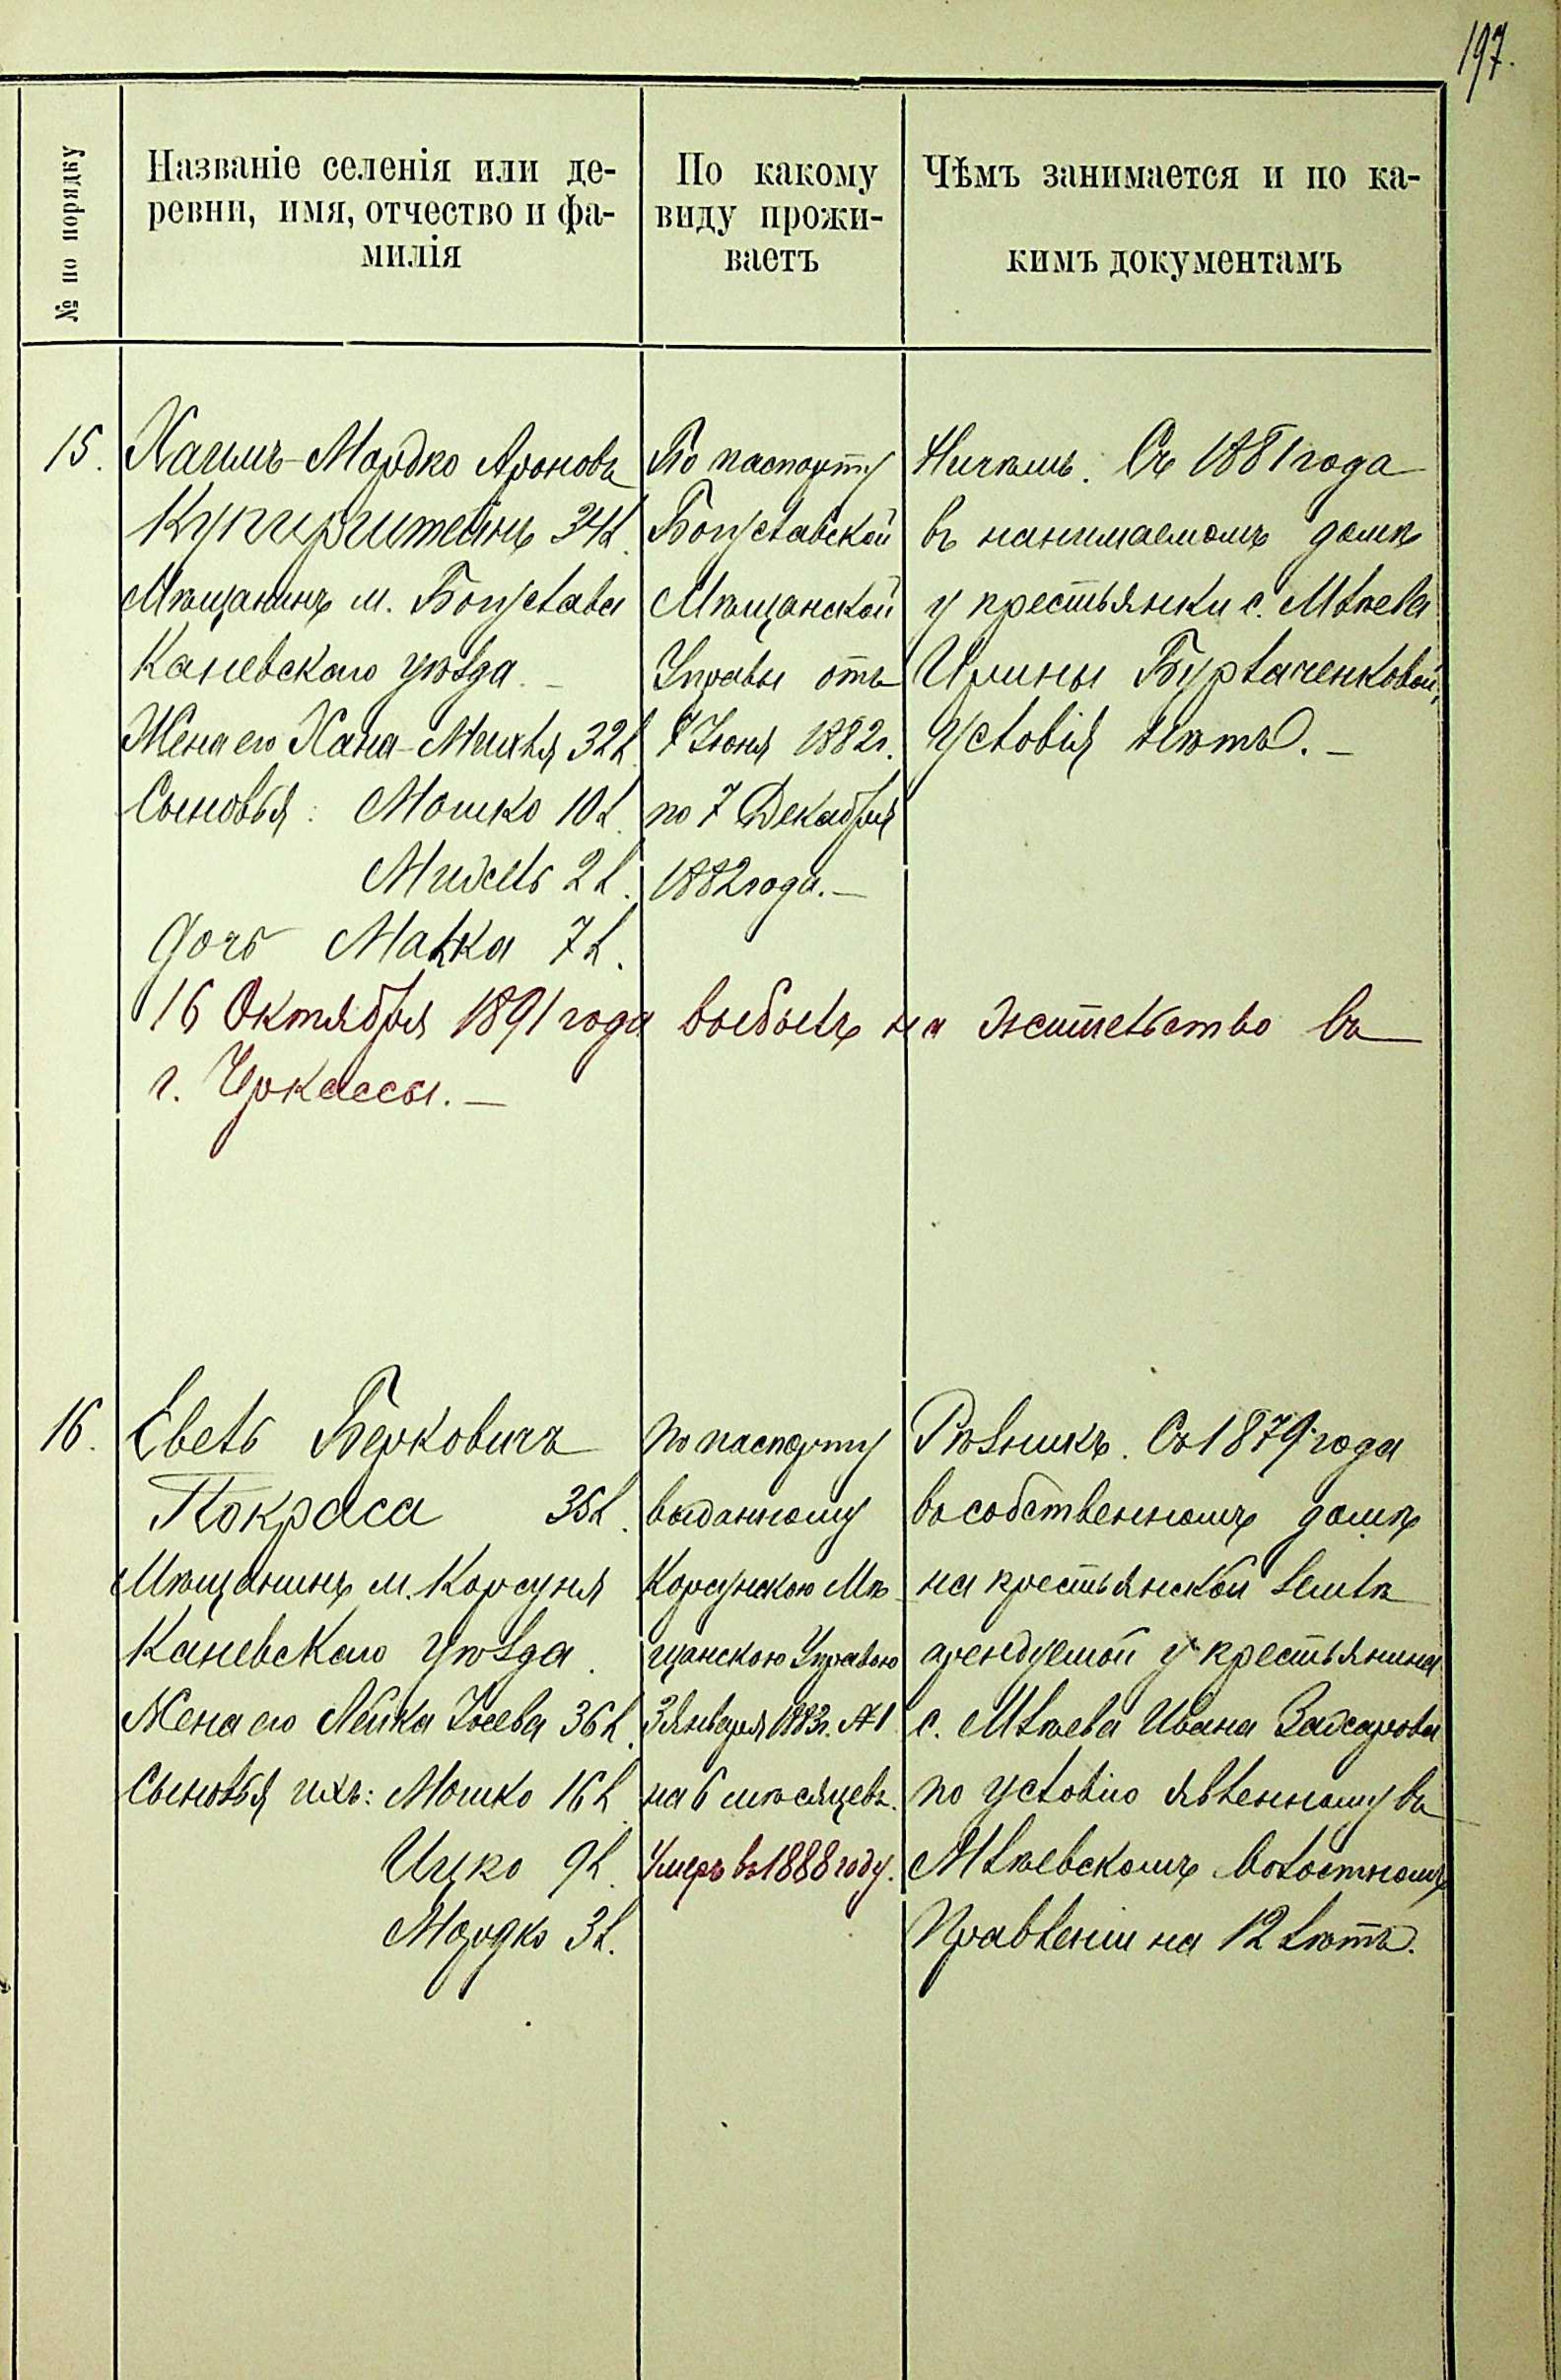 197.
№ по порядку
Названіе селенія или де-
ревни, имя, отчество и фа-
милія
По какому
виду прожи-
ваетъ
Чѣмъ занимается и по ка-
кимъ документамъ
15.
Хаимъ-Мордко Ароновъ
Куперштейнъ 34 л.
Мѣщанинъ м. Богуслава
Каневскаго уѣзда. —
Жена его Хана-Михля 32 л.
Сыновья: Мошко 10 л.
Мидель 2 л.
Дочь Малка 7 л.
По паспорту
Богуславской
Мѣщанской
Управы отъ
7 Іюня 1882 г.
по 7 Декабря
1882 года. —
Ничѣмъ. Съ 1881 года
въ нанимаемомъ домѣ
у крестьянки с. Млѣева
Ирины Бурлаченковой,
условія нѣтъ. —
16 Октября 1891 года выбылъ на жительство въ
г. Черкассы. —
16.
Евель Берковичъ
Покраса 35 л.
Мѣщанинъ м. Корсуня
Каневскаго уѣзда.
Жена его Лейка Іосева 36 л.
Сыновья ихъ: Мошко 16 л.
Ицко 9 л.
Мордко 3 л.
по паспорту
выданному
Корсунскою Мѣ-
щанскою Управою
3 Января 1883 г. № 1
на 6 мѣсяцевъ.
Умеръ въ 1888 году.
Рѣзникъ. Съ 1879 года
въ собственномъ домѣ
на крестьянской землѣ
арендуемой у крестьянина
с. Млѣева Ивана
по условію явленному въ
Млѣевскомъ Волостномъ
Правленіи на 12 лѣтъ.